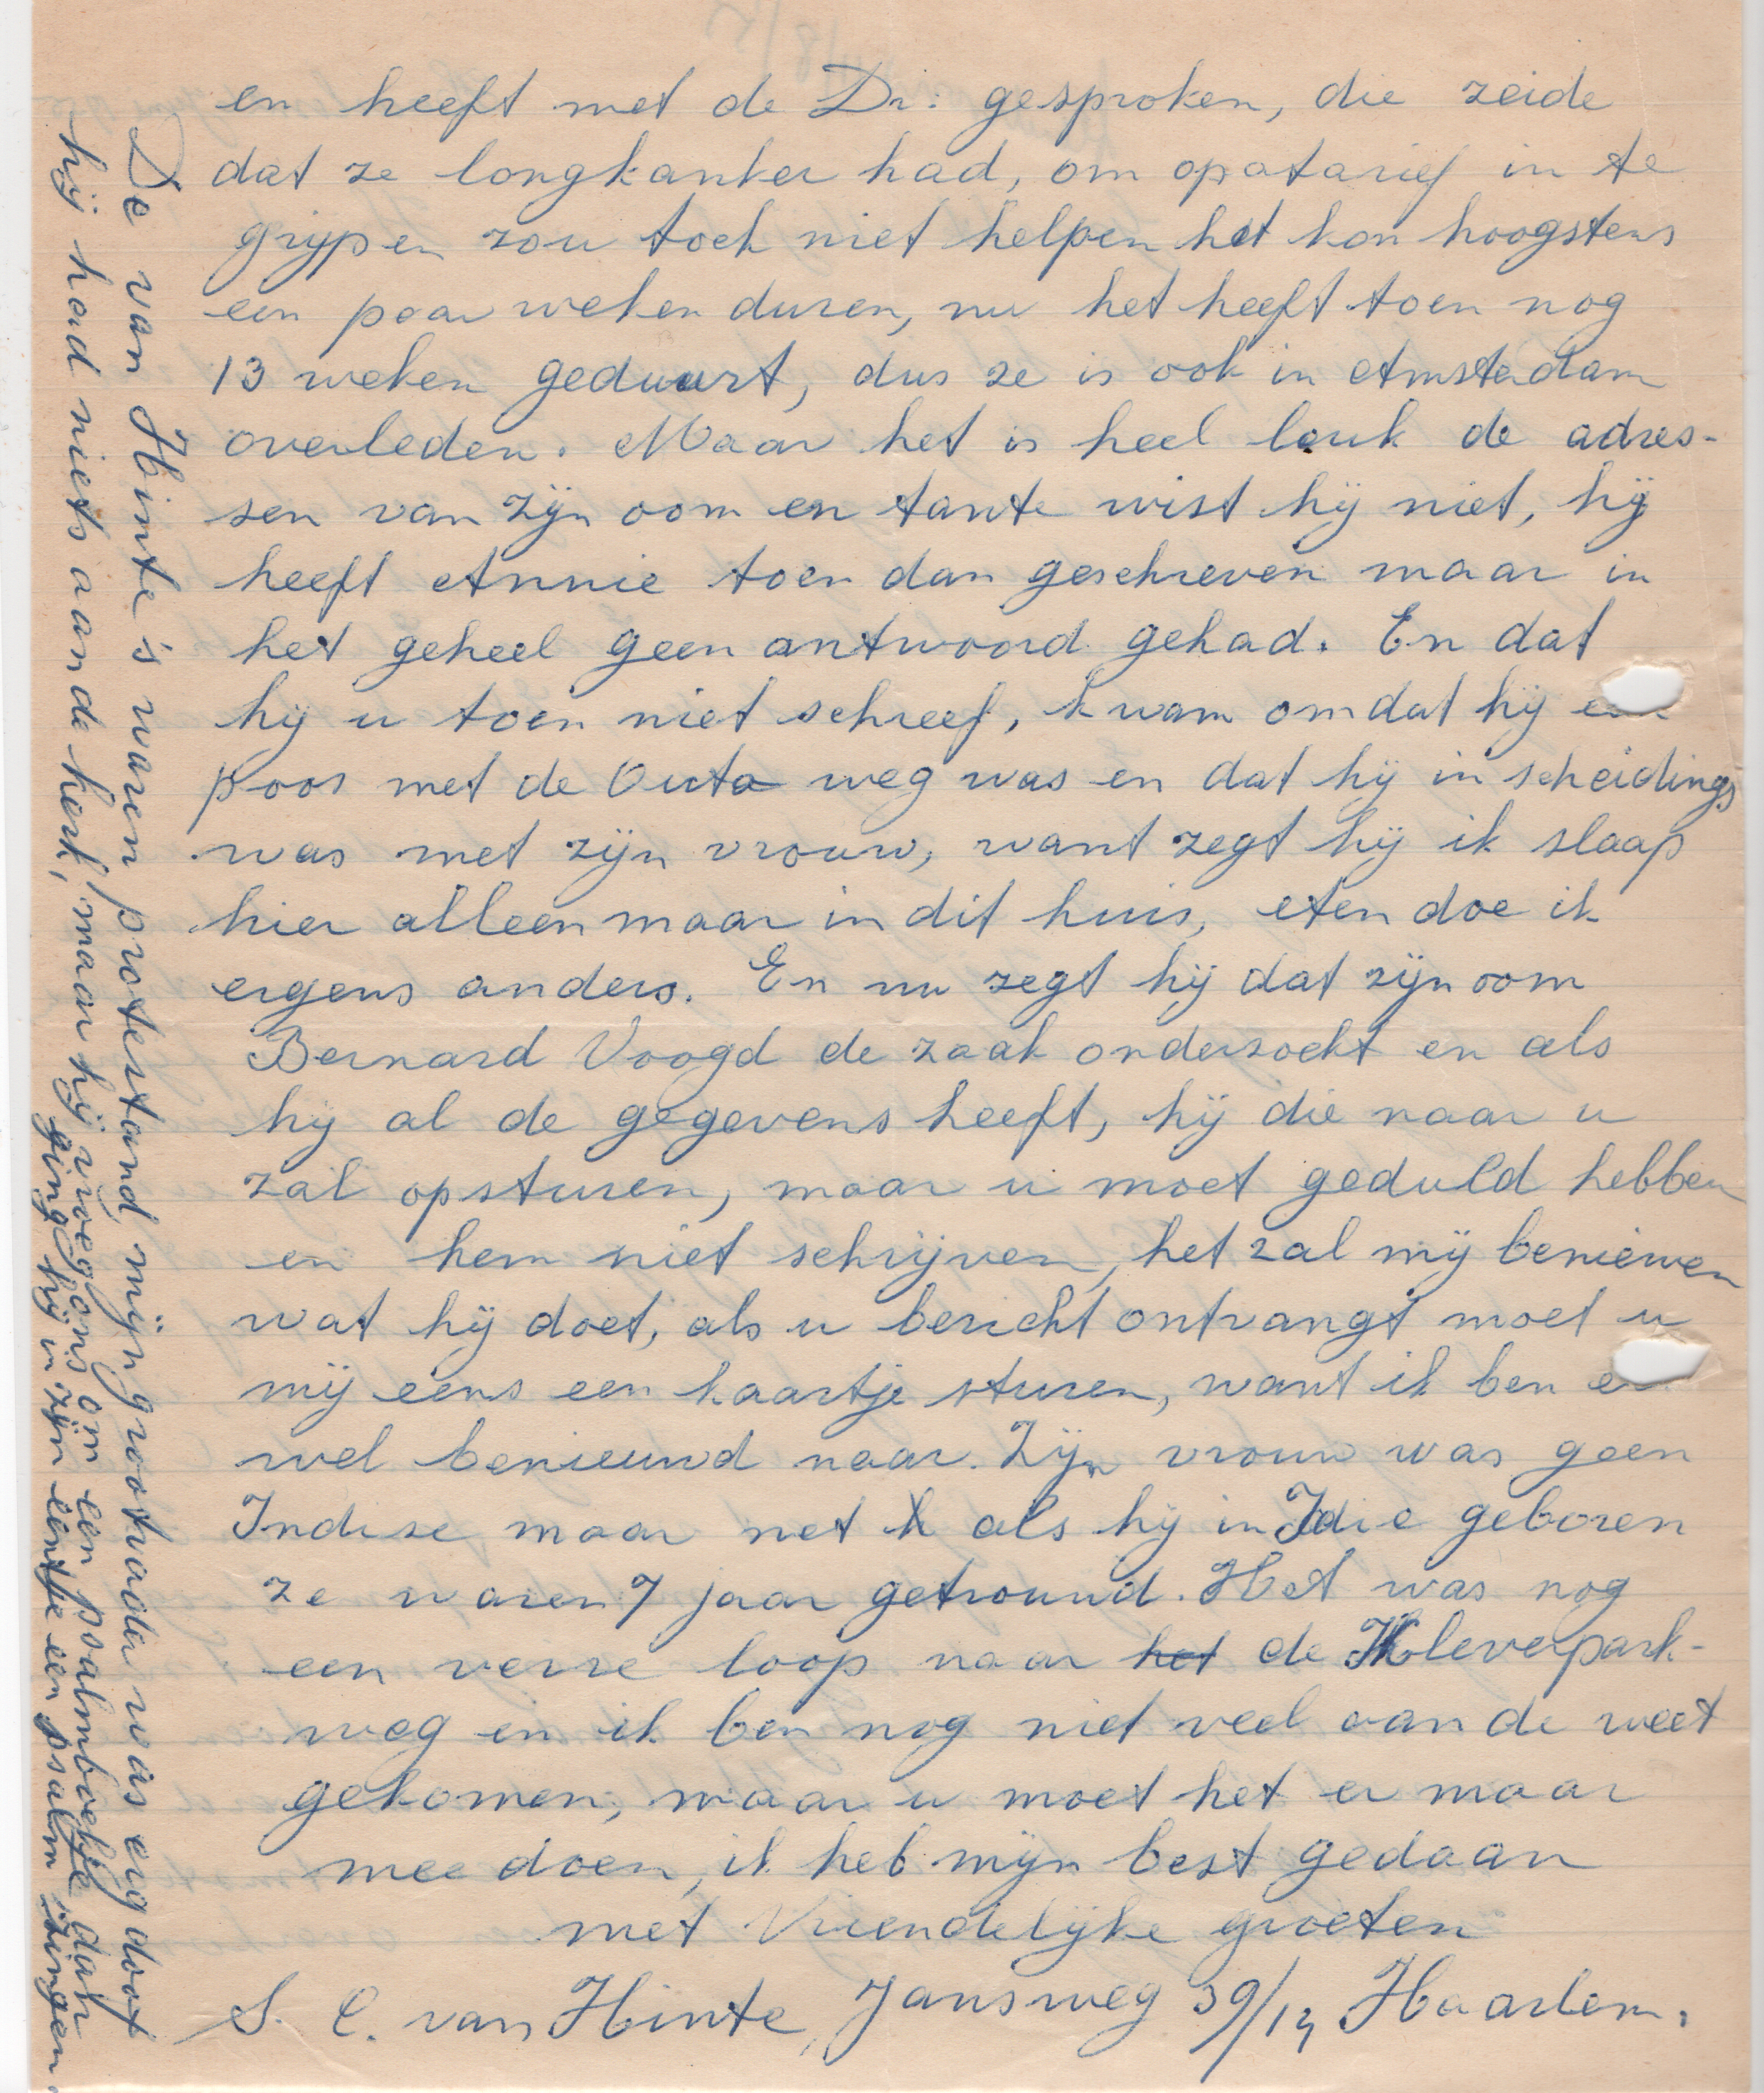 en heeft met de Dr: gesproken, die zeide
dat ze longkanker had, om opatarief in te
grypen zou toch niet helpen het kon hoogstens
een paar weken duren, nu het heeft toen nog
13 weken geduurt, dus ze is ook in Amsterdam
overleden. Maar het is heel leuk de adres-
sen van zijn oom en tante wist hij niet, hij
heeft Annie toen dan geschreven maar in
het geheel geen antwoord gehad. En dat
hij u toen niet schreef, kwam omdat hij een
poos met de Outo weg was en dat hij in scheidings
was met zijn vrouw, want zegt hij ik slaap
hier alleen maar in dit huis, eten doe ik
ergens anders. En nu zegt hij dat zijn oom
Bernard Voogd de zaak onderzocht en als
hij al de gegevens heeft, hij die naar u
zal opsturen, maar u moet geduld hebben
en hem niet schrijven, het zal mij benieuwen
wat hij doet, als u bericht ontvangt moet u
mij eens een kaartje sturen, want ik ben er
wel benieuwd naar. Zijn vrouw was geen
Indise maar net als hij in Idie geboren
ze waren 7 jaar getrouwd. Het was nog
een verre loop naar het de Kleverpark-
weg en ik ben nog niet veel aan de weet
gekomen, maar u moet het er maar
mee doen, ik heb mijn best gedaan
met Vriendelijke groeten
S. C. van Hinte, Jansweg 39/14 Haarlem.
De van Hinte's waren protestand, mijn grootvader was erg doof
hij had niets aan de kerk, maar hij vroeg ons om een psalmboekje dan
ging hij in zijn eentje een psalm zingen.